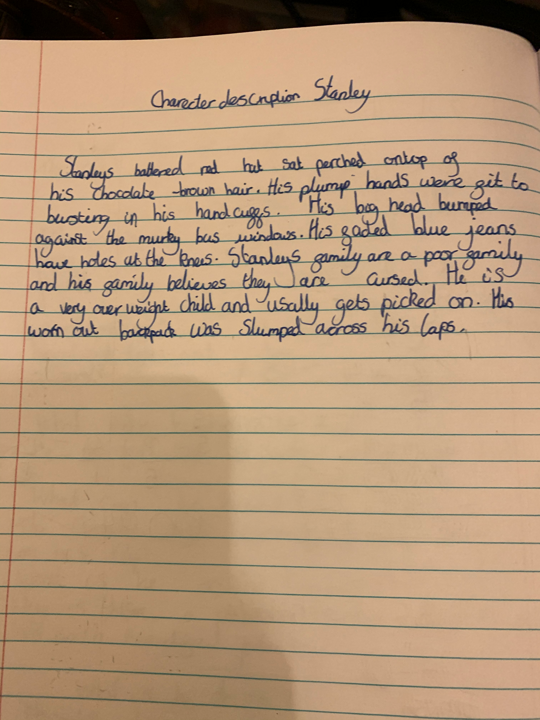 Charecter description Stanley
Stanleys battered red hat sat perched ontop of
his chocolate -brown hair. His plump hands were fit to
busting in his handcuffs. His big head bumped
against the murky bus windows. His faded blue jeans
have holes at the knees. Stanleys family are a poor family
and his family believes they are cursed. He is
a very overweight child and usally gets picked on. His
worn out backpack was slumped across his laps.